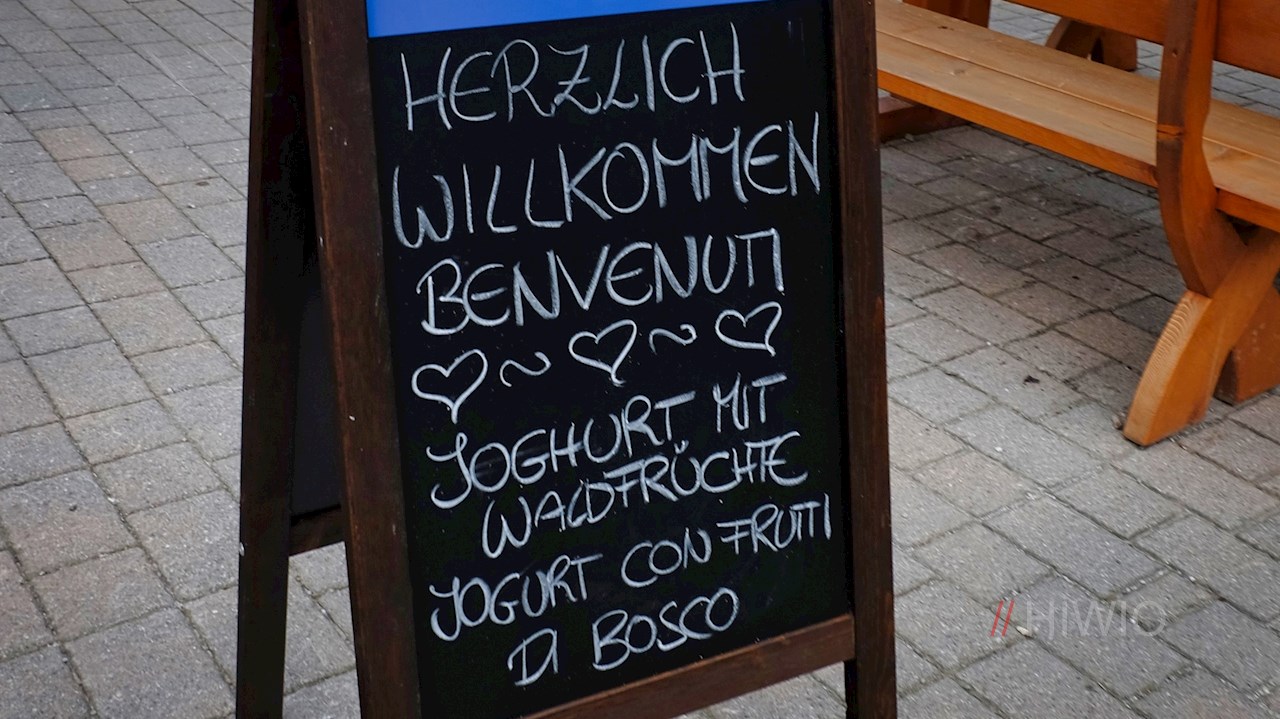 HERZLICH
WILLKOMMEN
BENVENUTI
JOGHURT MIT
WALDFRÜCHTE
JOGURT CON FRUTTI
DI BOSCO
// HJWIO